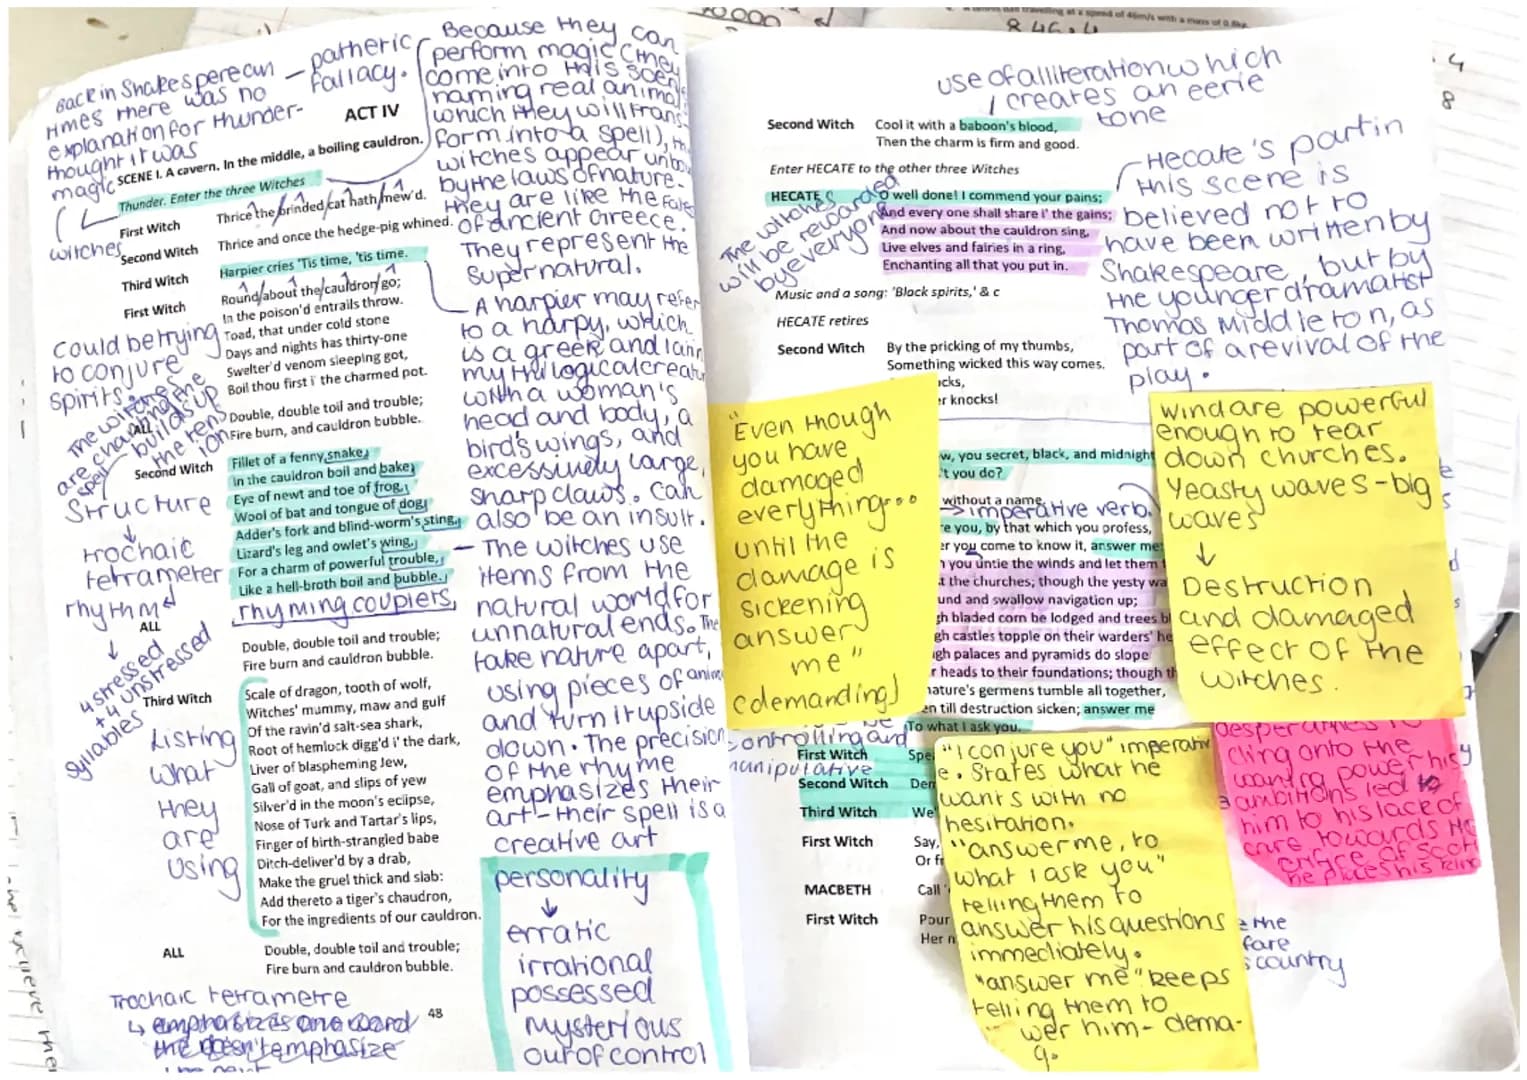 Back in Shakesperean
times there was no
explanation for thunder-
thought it was
magic
— pathetic
fallacy.
witches
ACT IV
SCENE I. A cavern. In the middle, a boiling cauldron.
Thunder. Enter the three Witches
First Witch Thrice the brinded cat hath mew'd.
Second Witch Thrice and once the hedge-pig whined.
Third Witch Harpier cries 'Tis time, 'tis time.
First Witch Round about the cauldron go;
In the poison'd entrails throw.
Toad, that under cold stone
Days and nights has thirty-one
Swelter'd venom sleeping got,
Boil thou first i' the charmed pot.
ALL Double, double toil and trouble;
Fire burn, and cauldron bubble.
Second Witch Fillet of a fenny snake,
In the cauldron boil and bake;
Eye of newt and toe of frog,
Wool of bat and tongue of dog,
Adder's fork and blind-worm's sting,
Lizard's leg and owlet's wing,
For a charm of powerful trouble,
Like a hell-broth boil and bubble.
rhyming couplets
ALL Double, double toil and trouble;
Fire burn and cauldron bubble.
Third Witch Scale of dragon, tooth of wolf,
Witches' mummy, maw and gulf
Of the ravin'd salt-sea shark,
Root of hemlock digg'd i' the dark,
Liver of blaspheming Jew,
Gall of goat, and slips of yew
Silver'd in the moon's eclipse,
Nose of Turk and Tartar's lips,
Finger of birth-strangled babe
Ditch-deliver'd by a drab,
Make the gruel thick and slab:
Add thereto a tiger's chaudron,
For the ingredients of our cauldron.
ALL Double, double toil and trouble;
Fire burn and cauldron bubble.
48
Could be trying
to conjure
spirits.
The witches
are chanting the
spell - builds up
the tens
ion
Structure
↓
trochaic
tetrameter
rhythm
↓
4 stressed
+ 4 unstressed
syllables
Listing
what
they
are
using
Trochaic tetrametre
↳ emphasizes one word
the doesn't emphasize
the next
Because they can
perform magic (they
come into this scene
naming real animals
which they will trans
form into a spell), the
witches appear unbou
by the laws of nature.
they are like the Fates
of ancient Greece.
They represent the
supernatural.
A harpier may refer
to a harpy, which
is a greek and latin
mythilogical creature
with a woman's
head and body, a
bird's wings, and
excessively large,
sharp claws. Can
also be an insult.
— The witches use
items from the
natural world for
unnatural ends. The
take nature apart,
using pieces of anim
and turn it upside
down. The precision
of the rhyme
emphasizes their
art - their spell is a
creative art
personality
↓
erratic
irrational
possessed
mysterious
out of control
70000
travelling at a speed of 46m/s with a mass of 0.6kg.
846.4
.4
8
use of alliteration which
creates an eerie
tone
Second Witch Cool it with a baboon's blood,
Then the charm is firm and good.
Enter HECATE to the other three Witches
HECATE O well done! I commend your pains;
And every one shall share i' the gains;
And now about the cauldron sing,
Live elves and fairies in a ring,
Enchanting all that you put in.
The witches
will be rewarded
by everyone
Music and a song: 'Black spirits,' & c
HECATE retires
Second Witch By the pricking of my thumbs,
Something wicked this way comes.
ocks,
r knocks!
Hecate's part in
this scene is
believed not to
have been written by
Shakespeare, but by
the younger dramatist
Thomas Middleton, as
part of a revival of the
play.
w, you secret, black, and midnight
't you do?
without a name.
→ imperative verb.
e you, by that which you profess,
er you come to know it, answer me:
h you untie the winds and let them
t the churches; though the yesty wa
und and swallow navigation up;
gh bladed corn be lodged and trees bl
gh castles topple on their warders' he
gh palaces and pyramids do slope
r heads to their foundations; though th
nature's germens tumble all together,
en till destruction sicken; answer me
To what I ask you.
"Even though
you have
damaged
everything...
until the
damage is
sickening
answer
me"
(demanding)
wind are powerful
enough to tear
down churches.
Yeasty waves - big
waves
↓
Destruction
and damaged
effect of the
witches.
controlling and
manipulative
First Witch Spe
Second Witch Dem
Third Witch We'
First Witch Say,
Or fr
MACBETH Call
First Witch Pour
Her n
"I conjure you" imperativ
e. States what he
wants with no
hesitation.
"answer me, to
what I ask you"
telling them to
answer his questions
immediately.
"answer me" keeps
telling them to
wer him - dema-
g.
cling onto the
power his
ambitions led
him to his lack of
care towards the
the
fare
country